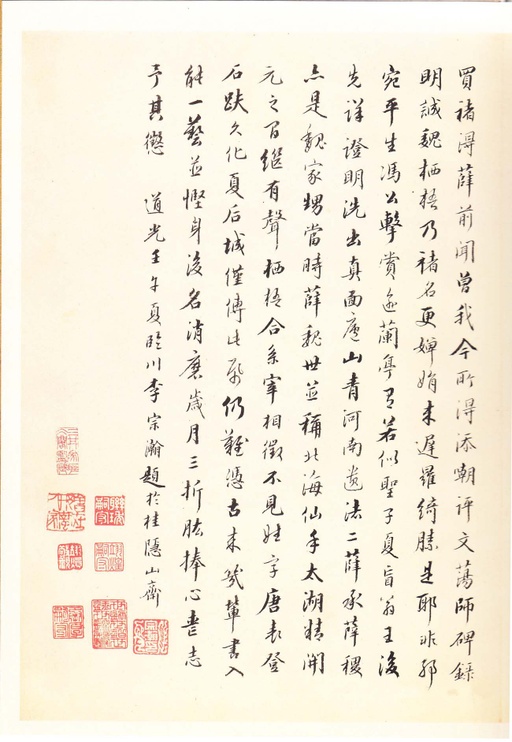 買褚得薛前聞曾我今所得添嘲評文蕩師碑錄
明誠魏栖梧乃褚名更嬋娟未遲羅綺勝是耶非邪
宛平生馮公擊賞逾蘭亭有若似聖子夏盲翁王後
先詳證明洗出真面廬山青河南遺法二薛承薛稷
亦是魏家甥當時薛魏世並稱北海仙手太湖精開
元之間繼有聲栖梧合系宰相徵不見姓字唐表登
石趺久化夏后城僅傳此冊仍難憑古來幾輩書入
能一藝並慳身後名消磨歲月三折肱捧心喪志
予其懲 道光壬午夏臨川李宗瀚題於桂隱山齋